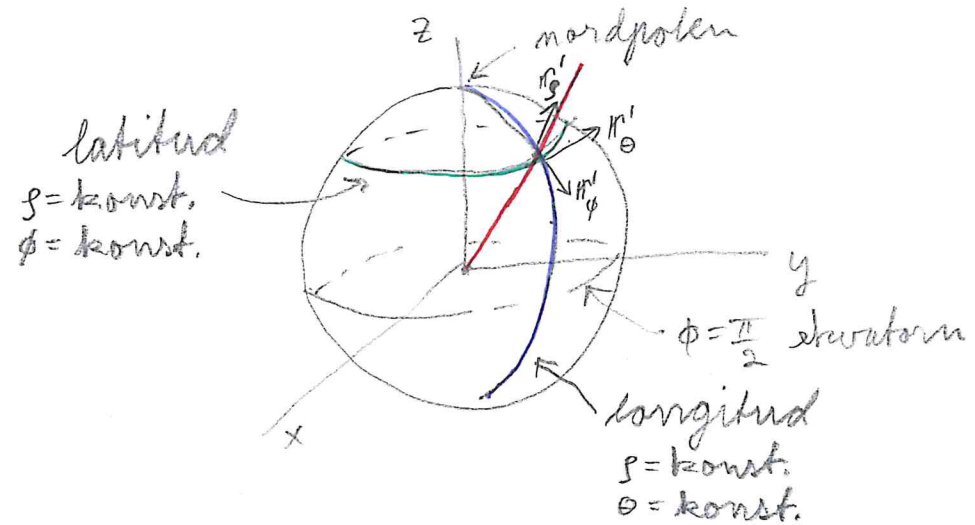 z
nordpolen
𝐫'ρ
𝐫'θ
𝐫'ϕ
latitud
ρ = konst.
ϕ = konst.
y
ϕ = π/2 ekvatorn
x
longitud
ρ = konst.
θ = konst.